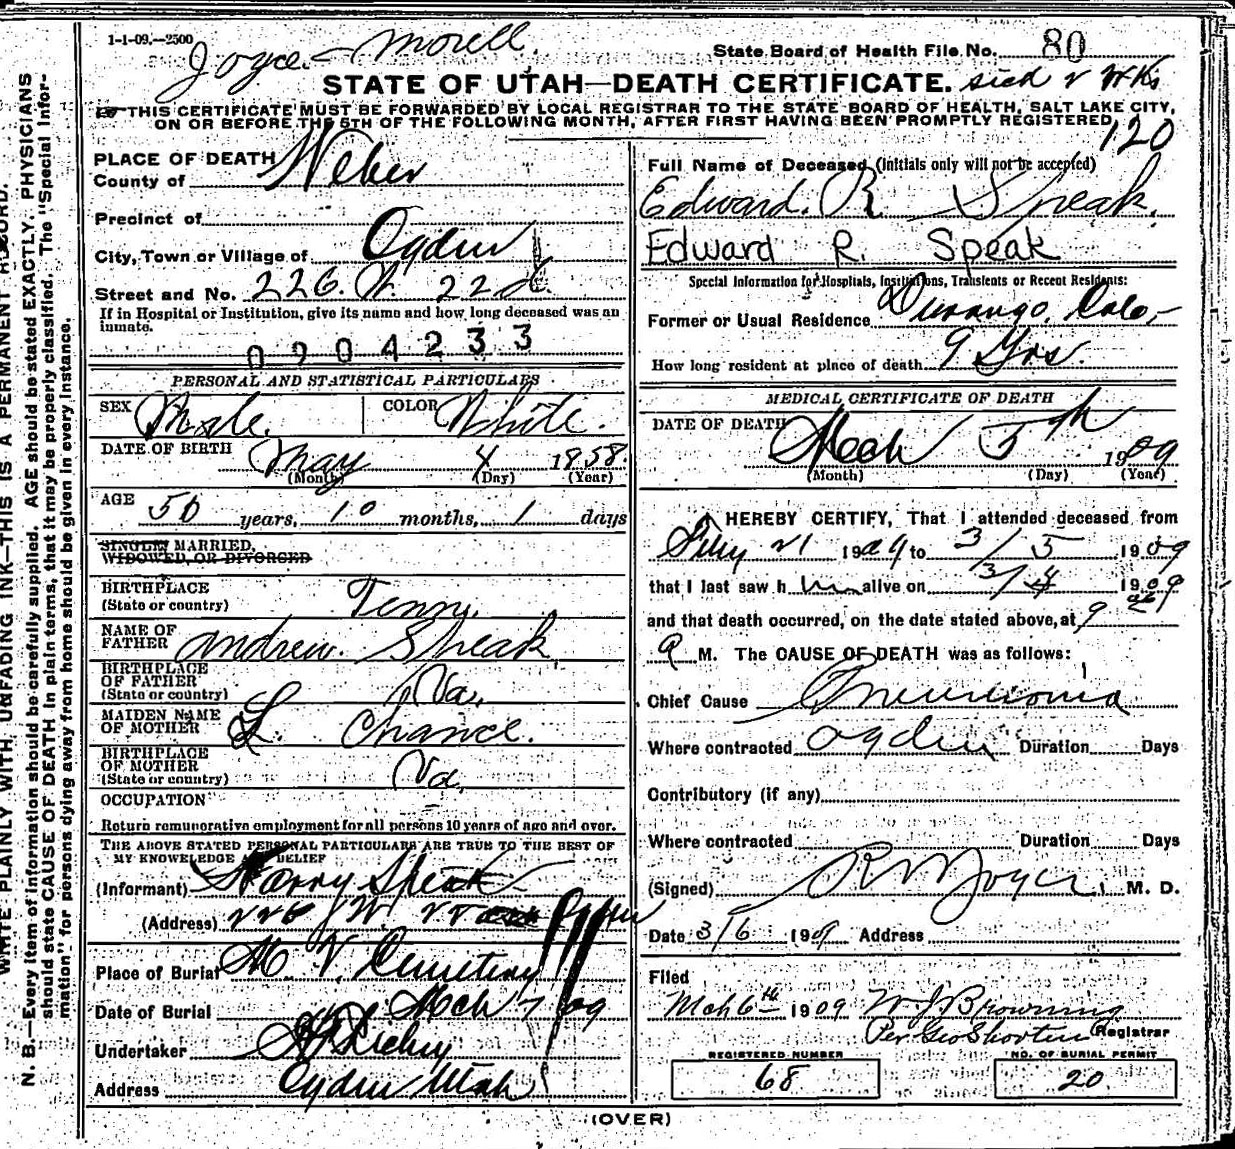 1-1-09.--2500
Joyce - Morell.
State Board of Health File No. 80
STATE OF UTAH—DEATH CERTIFICATE.
sick 2 Wks
THIS CERTIFICATE MUST BE FORWARDED BY LOCAL REGISTRAR TO THE STATE BOARD OF HEALTH, SALT LAKE CITY,
ON OR BEFORE THE 5TH OF THE FOLLOWING MONTH, AFTER FIRST HAVING BEEN PROMPTLY REGISTERED
120
WRITE PLAINLY WITH UNFADING INK—THIS IS A PERMANENT RECORD.
N. B.—Every item of information should be carefully supplied. AGE should be stated EXACTLY. PHYSICIANS
should state CAUSE OF DEATH in plain terms, that it may be properly classified. The "Special Infor-
mation" for persons dying away from home should be given in every instance.
PLACE OF DEATH
County of Weber
Precinct of
City, Town or Village of Ogden
Street and No. 226. W 22d.
If in Hospital or Institution, give its name and how long deceased was an
inmate.
0904233
PERSONAL AND STATISTICAL PARTICULARS
SEX Male. COLOR White.
DATE OF BIRTH May 4 1858
(Month) (Day) (Year)
AGE 50 years, 10 months, 1 days
SINGLE, MARRIED,
WIDOWED, OR DIVORCED
BIRTHPLACE
(State or country) Tenn.
NAME OF
FATHER Andrew. Speak.
BIRTHPLACE
OF FATHER
(State or country) Va.
MAIDEN NAME
OF MOTHER L. Chance.
BIRTHPLACE
OF MOTHER
(State or country) Va.
OCCUPATION
Return remunerative employment for all persons 10 years of age and over.
THE ABOVE STATED PERSONAL PARTICULARS ARE TRUE TO THE BEST OF
MY KNOWLEDGE AND BELIEF
(Informant) Harry Speak
(Address) 226 W. 22 Ogden
Place of Burial M. V. Cemetery
Date of Burial Mch 7 09
Undertaker
Address Ogden Utah
Full Name of Deceased (Initials only will not be accepted)
Edward. R Speak.
Edward R. Speak
Special Information for Hospitals, Institutions, Transients or Recent Residents:
Former or Usual Residence Durango, Colo.
How long resident at place of death 9 Yrs.
MEDICAL CERTIFICATE OF DEATH
DATE OF DEATH Mch 5th 1909
(Month) (Day) (Year)
I HEREBY CERTIFY, That I attended deceased from
Feby 21 1909 to 3/5 1909
that I last saw him alive on 3/4 1909
and that death occurred, on the date stated above, at 9
a M. The CAUSE OF DEATH was as follows:
Chief Cause Pneumonia
Where contracted Ogden Duration Days
Contributory (if any)
Where contracted Duration Days
(Signed) R M Joyce M. D.
Date 3/6 1909 Address
Filed
Mch 6th 1909 W J Browning
Per Geo Shorten Registrar
REGISTERED NUMBER
68
NO. OF BURIAL PERMIT
20
(OVER)